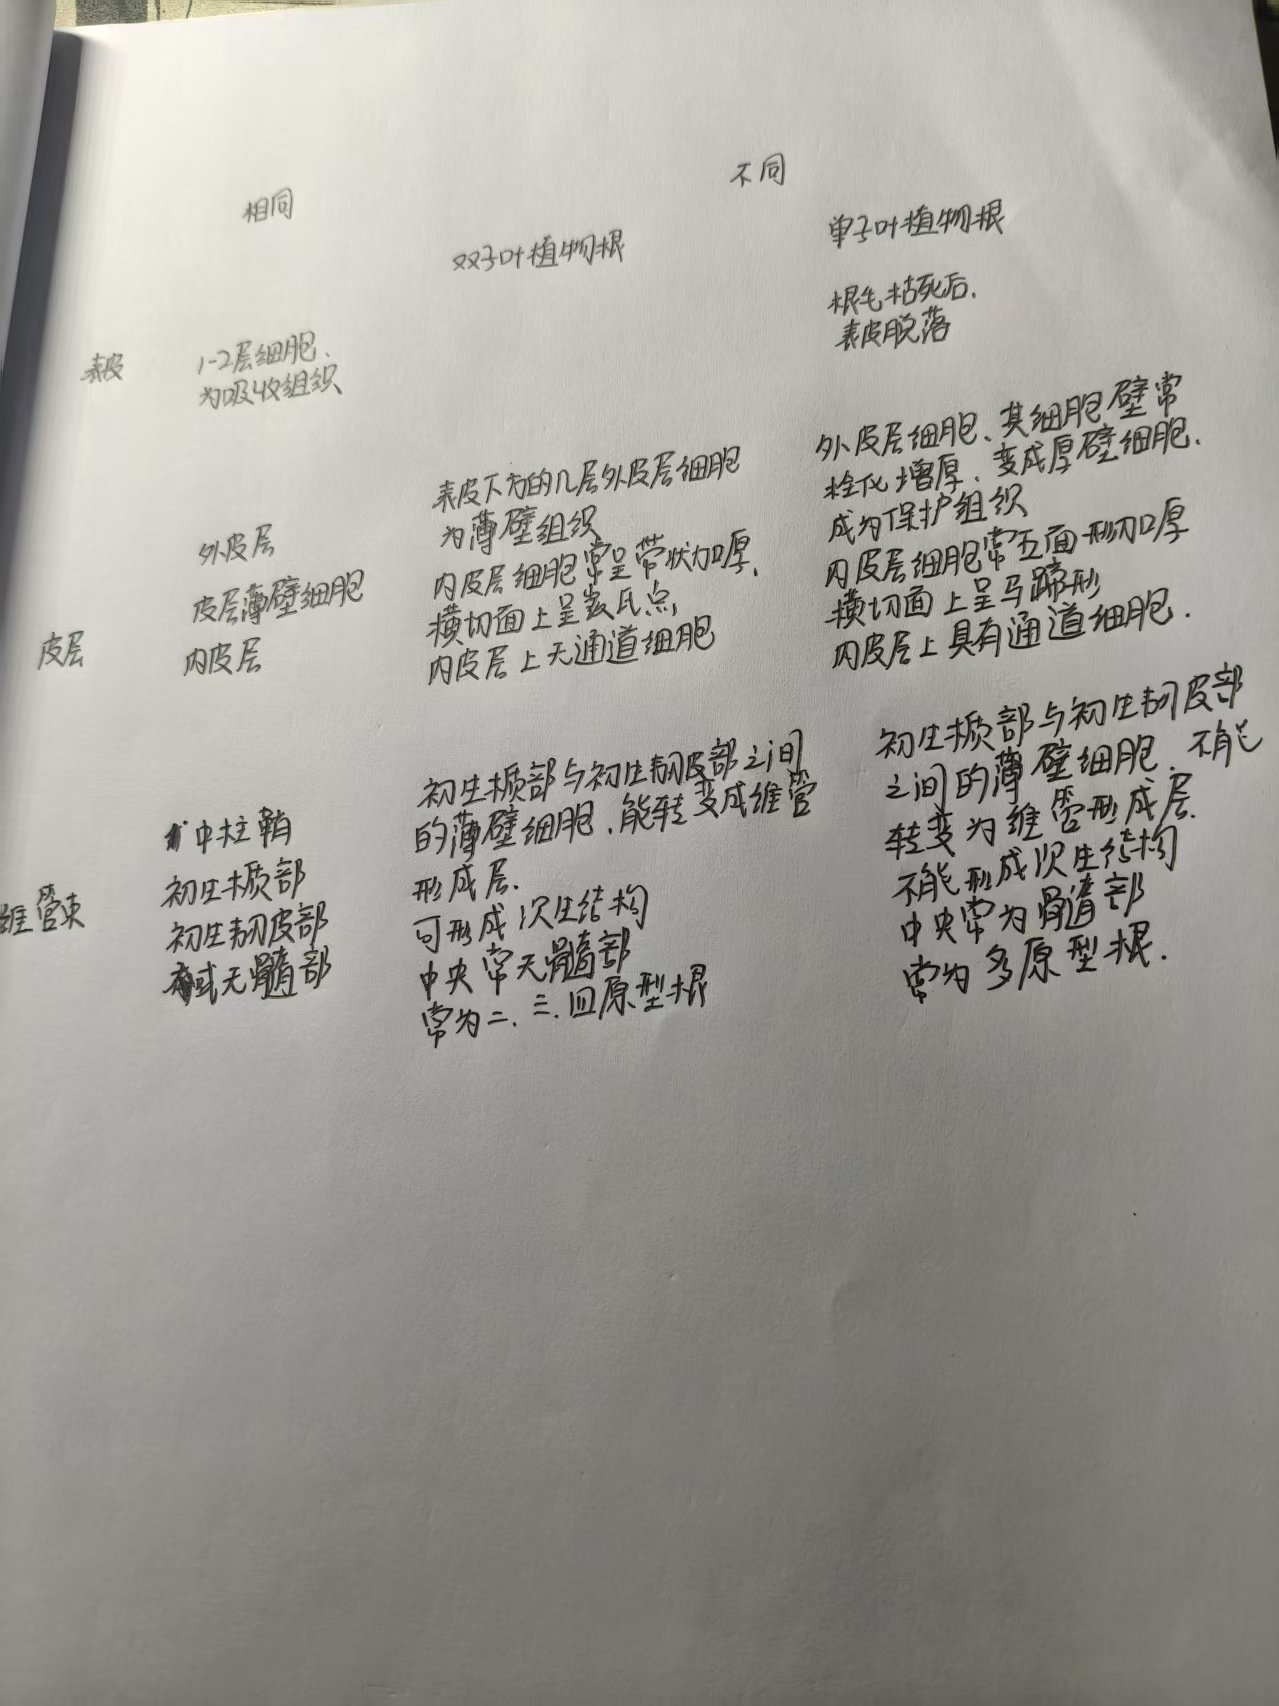 相同
不同
双子叶植物根
单子叶植物根
表皮
1-2层细胞、
为吸收组织
根毛枯死后.
表皮脱落
皮层
外皮层
皮层薄壁细胞
内皮层
表皮下方的几层外皮层细胞
为薄壁组织
内皮层细胞常呈带状加厚.
横切面上呈凯氏点,
内皮层上无通道细胞
外皮层细胞、其细胞壁常
栓化增厚、变成厚壁细胞.
成为保护组织
内皮层细胞常五面形加厚
横切面上呈马蹄形
内皮层上具有通道细胞.
维管束
中柱鞘
初生木质部
初生韧皮部
有或无髓部
初生木质部与初生韧皮部之间
的薄壁细胞.能转变成维管
形成层.
可形成次生结构
中央常无髓部
常为二.三.四原型根
初生木质部与初生韧皮部
之间的薄壁细胞.不能
转变为维管形成层.
不能形成次生结构
中央常为髓部
常为多原型根.